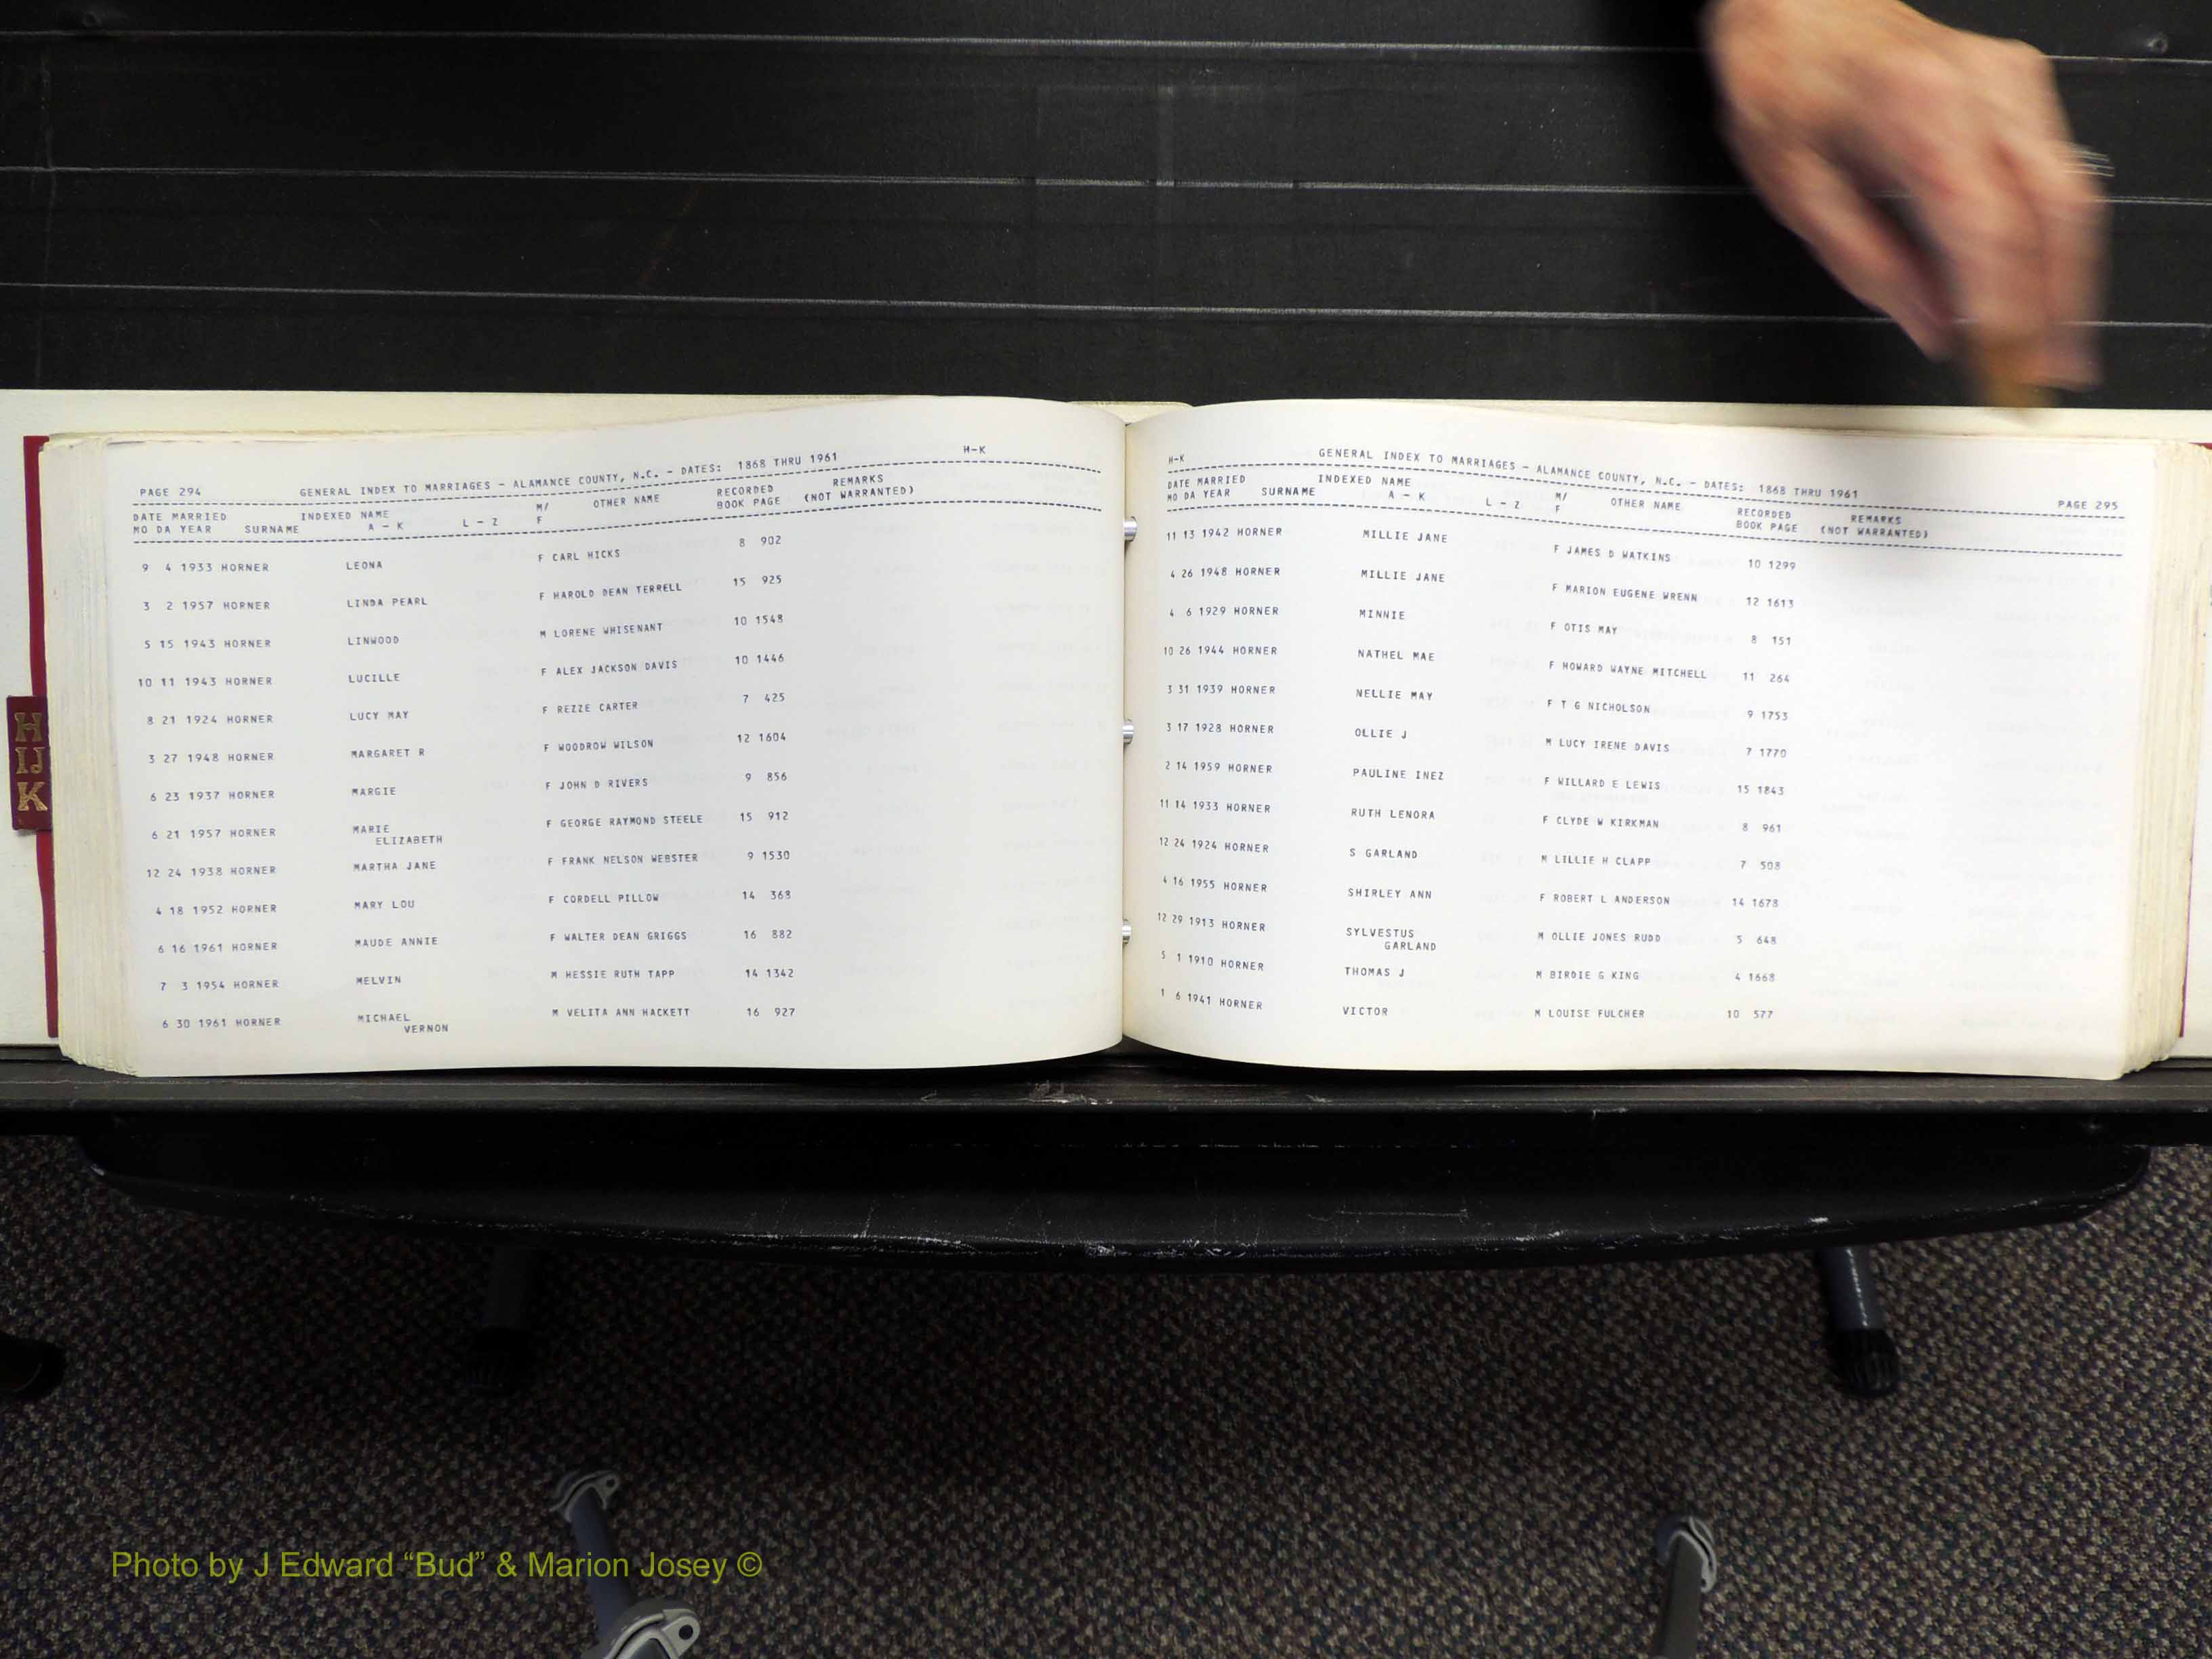 H
IJ
K
PAGE 294 GENERAL INDEX TO MARRIAGES - ALAMANCE COUNTY, N.C. - DATES: 1868 THRU 1961 H-K
DATE MARRIED INDEXED NAME M/ OTHER NAME RECORDED REMARKS
MO DA YEAR SURNAME A - K L - Z F BOOK PAGE (NOT WARRANTED)
9 4 1933 HORNER LEONA F CARL HICKS 8 902
3 2 1957 HORNER LINDA PEARL F HAROLD DEAN TERRELL 15 925
5 15 1943 HORNER LINWOOD M LORENE WHISENANT 10 1548
10 11 1943 HORNER LUCILLE F ALEX JACKSON DAVIS 10 1446
8 21 1924 HORNER LUCY MAY F REZZE CARTER 7 425
3 27 1948 HORNER MARGARET R F WOODROW WILSON 12 1604
6 23 1937 HORNER MARGIE F JOHN D RIVERS 9 856
6 21 1957 HORNER MARIE F GEORGE RAYMOND STEELE 15 912
ELIZABETH
12 24 1938 HORNER MARTHA JANE F FRANK NELSON WEBSTER 9 1530
4 18 1952 HORNER MARY LOU F CORDELL PILLOW 14 368
6 16 1961 HORNER MAUDE ANNIE F WALTER DEAN GRIGGS 16 882
7 3 1954 HORNER MELVIN M HESSIE RUTH TAPP 14 1342
6 30 1961 HORNER MICHAEL M VELITA ANN HACKETT 16 927
VERNON
H-K GENERAL INDEX TO MARRIAGES - ALAMANCE COUNTY, N.C. - DATES: 1868 THRU 1961 PAGE 295
DATE MARRIED INDEXED NAME M/ OTHER NAME RECORDED REMARKS
MO DA YEAR SURNAME A - K L - Z F BOOK PAGE (NOT WARRANTED)
11 13 1942 HORNER MILLIE JANE F JAMES D WATKINS 10 1299
4 26 1948 HORNER MILLIE JANE F MARION EUGENE WRENN 12 1613
4 6 1929 HORNER MINNIE F OTIS MAY 8 151
10 26 1944 HORNER NATHEL MAE F HOWARD WAYNE MITCHELL 11 264
3 31 1939 HORNER NELLIE MAY F T G NICHOLSON 9 1753
3 17 1928 HORNER OLLIE J M LUCY IRENE DAVIS 7 1770
2 14 1959 HORNER PAULINE INEZ F WILLARD E LEWIS 15 1843
11 14 1933 HORNER RUTH LENORA F CLYDE W KIRKMAN 8 961
12 24 1924 HORNER S GARLAND M LILLIE H CLAPP 7 508
4 16 1955 HORNER SHIRLEY ANN F ROBERT L ANDERSON 14 1678
12 29 1913 HORNER SYLVESTUS M OLLIE JONES RUDD 5 648
GARLAND
5 1 1910 HORNER THOMAS J M BIRDIE G KING 4 1668
1 6 1941 HORNER VICTOR M LOUISE FULCHER 10 577
Photo by J Edward “Bud” & Marion Josey ©